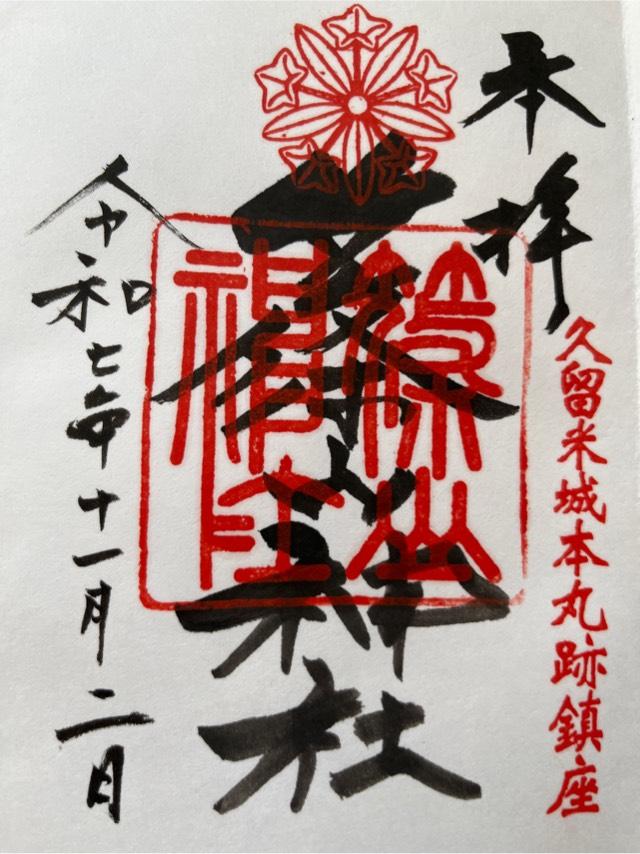 本拝
久留米城本丸跡鎮座
篠山神社
篠山神社
令和七年十一月二日